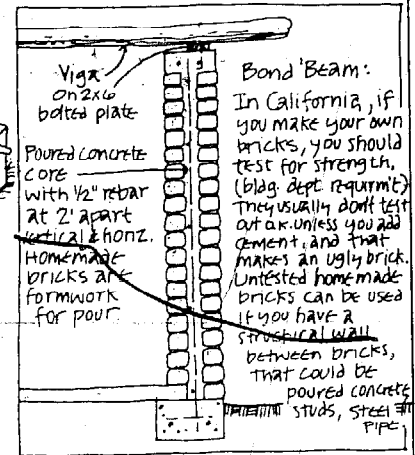 Viga
on 2x6
bolted plate
Poured concrete
core
with 1/2" rebar
at 2' apart
vertical & horiz.
Homemade
bricks are
formwork
for pour
Bond Beam:
In California, if
you make your own
bricks, you should
test for strength,
(bldg. dept. requirm't)
They usually don't test
out o.k. unless you add
cement, and that
makes an ugly brick.
Untested home made
bricks can be used
if you have a
structical wall
between bricks,
that could be
poured concrete
studs, steel
pipe